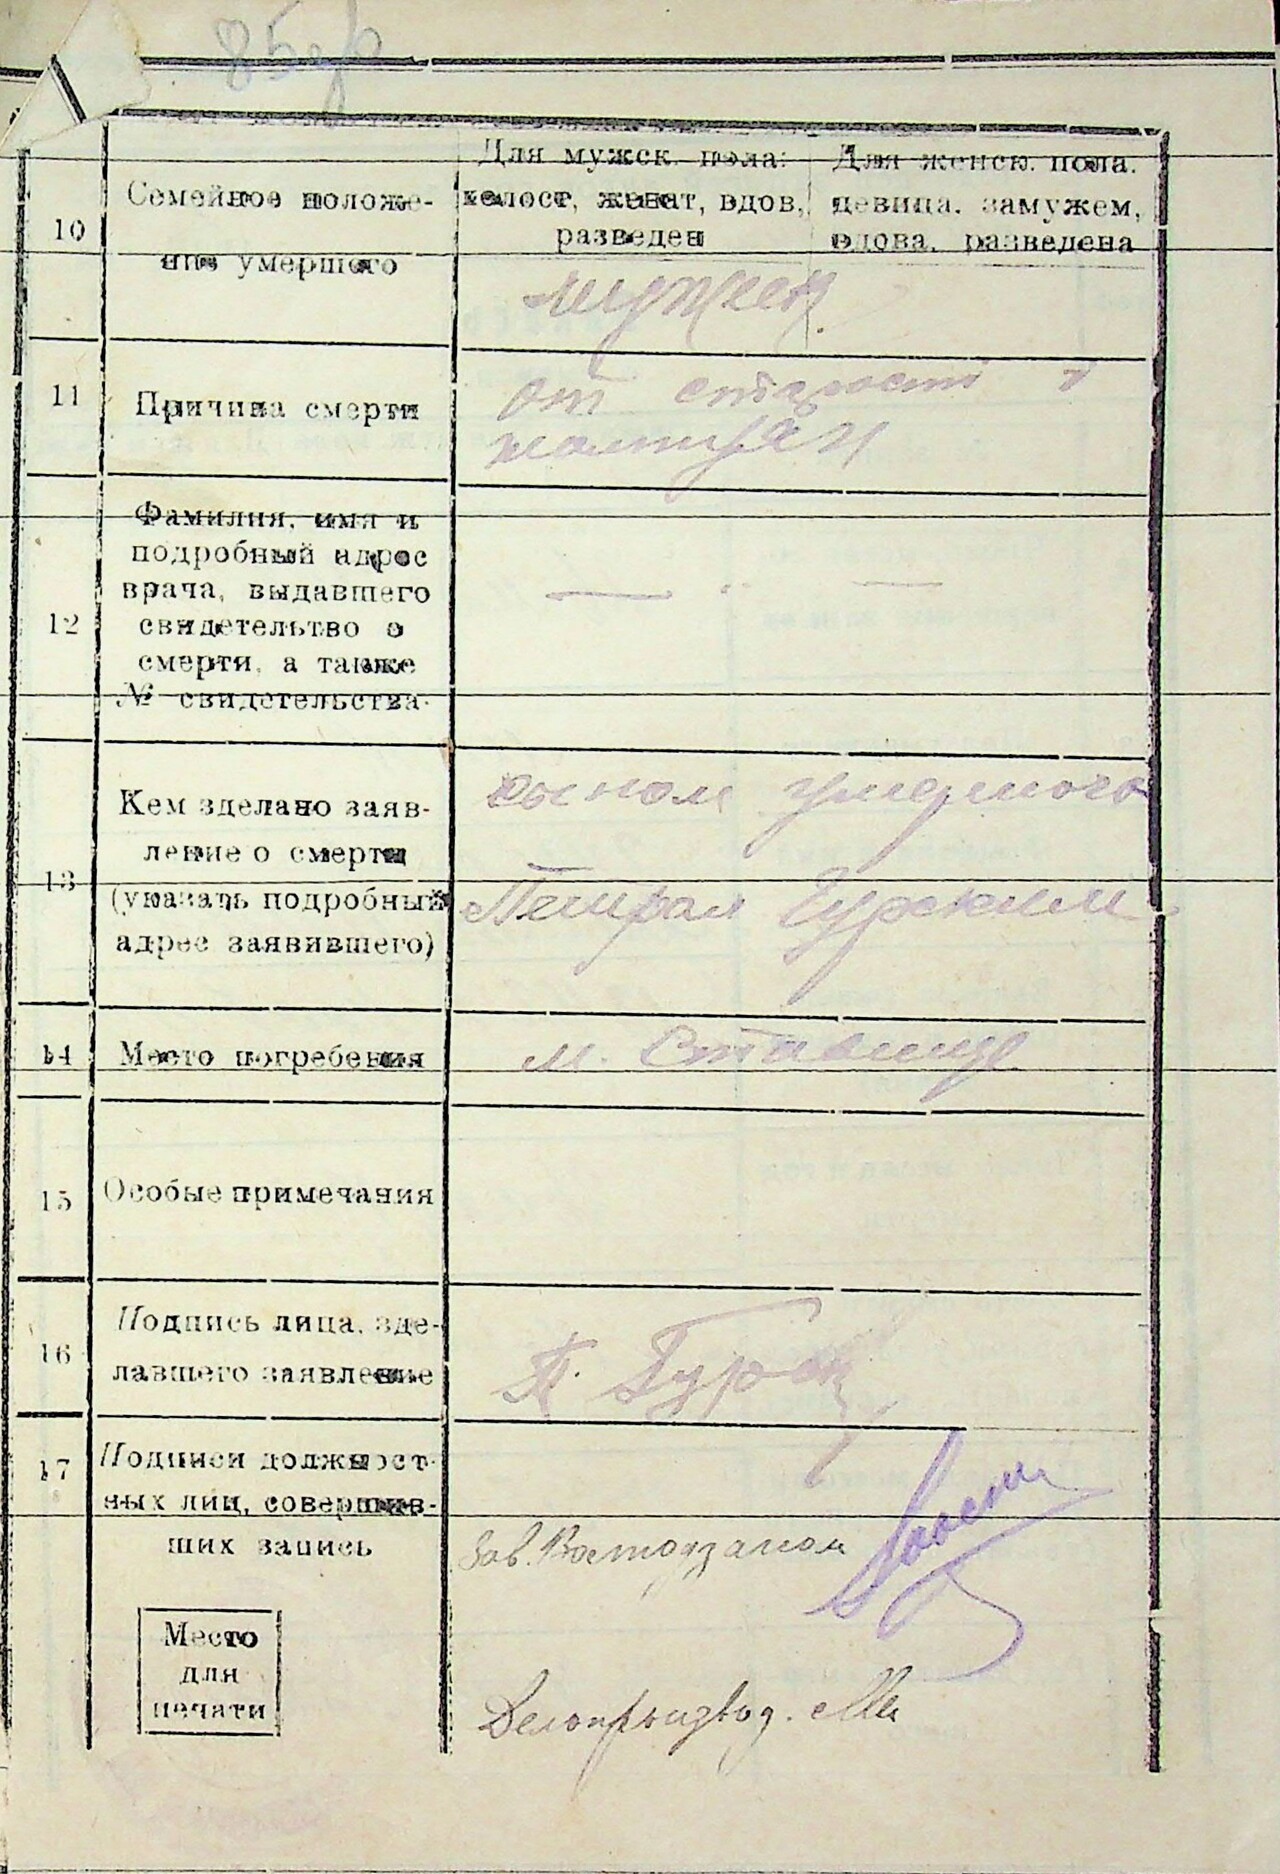 85об
10
Семейное положе-
ние умершего
Для мужск. пола:
холост, женат, вдов,
разведен
Для женск. пола.
девица, замужем,
вдова, разведена
11
Причина смерти
от старости
12
Фамилия, имя и
подробный адрес
врача, выдавшего
свидетельтво о
смерти, а также
№ свидетельства
— " —
13
Кем зделано заяв-
ление о смерти
(указать подробный
адрес заявившего)
сыном умершого
Петром Гурским
14
Место погребения
м. Ставище
15
Особые примечания
16
Подпись лица, зде-
лавшего заявление
П. Гурск
17
Подписи должност-
ных лиц, совершив-
ших запись
Зав.
Делопроизвод.
Место
для
печати